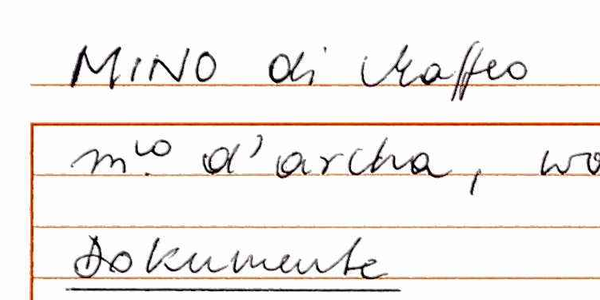 MINO di Maffeo
m.ro d'archa, wo
Dokumente